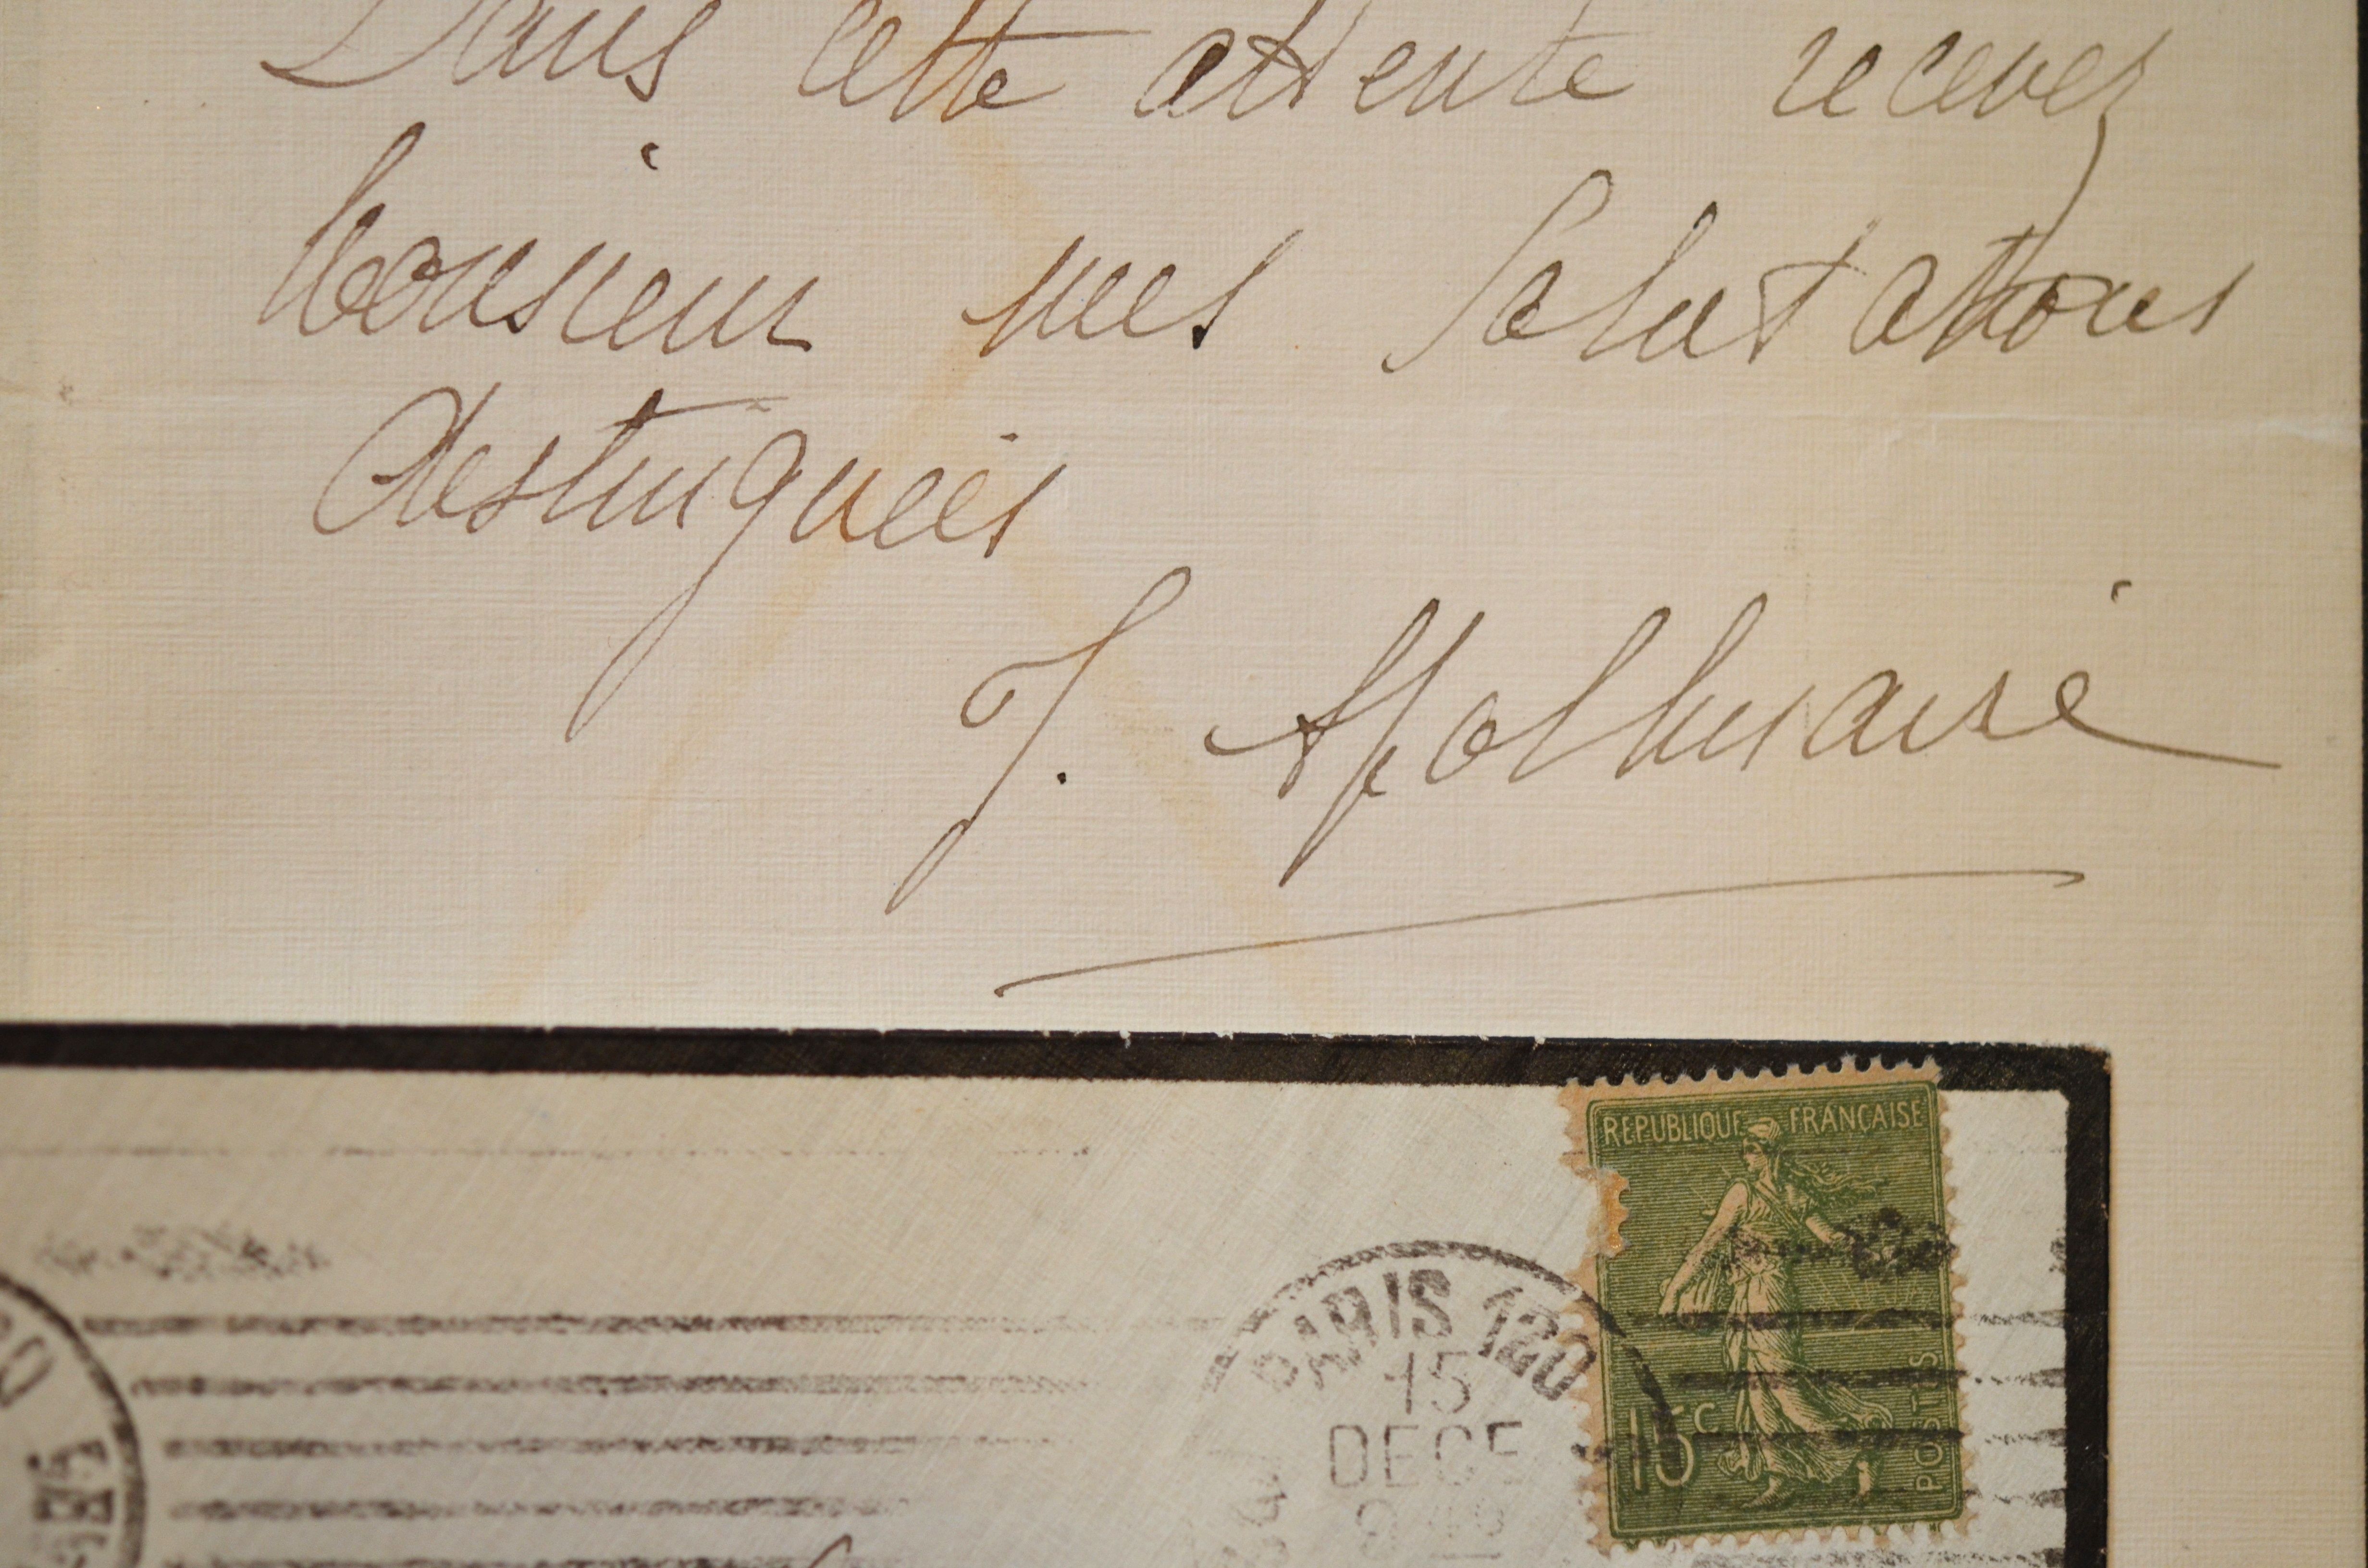 Dans cette attente recevez
Monsieur mes Salutations
destinguées
J. Apollinaire
REPUBLIQUE FRANÇAISE
PARIS 120
15
DECE
15c
POSTES